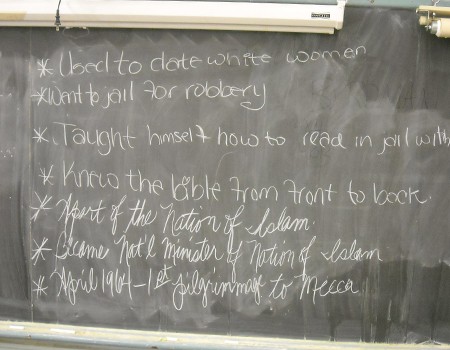 * Used to date white women
* Went to jail for robbery
* Taught himself how to read in jail with
* Knew the bible from front to back.
* Apart of the Nation of Islam.
* Became Nat'l Minister of Nation of Islam
* April 1964 - 1st pilgrimmage to Mecca